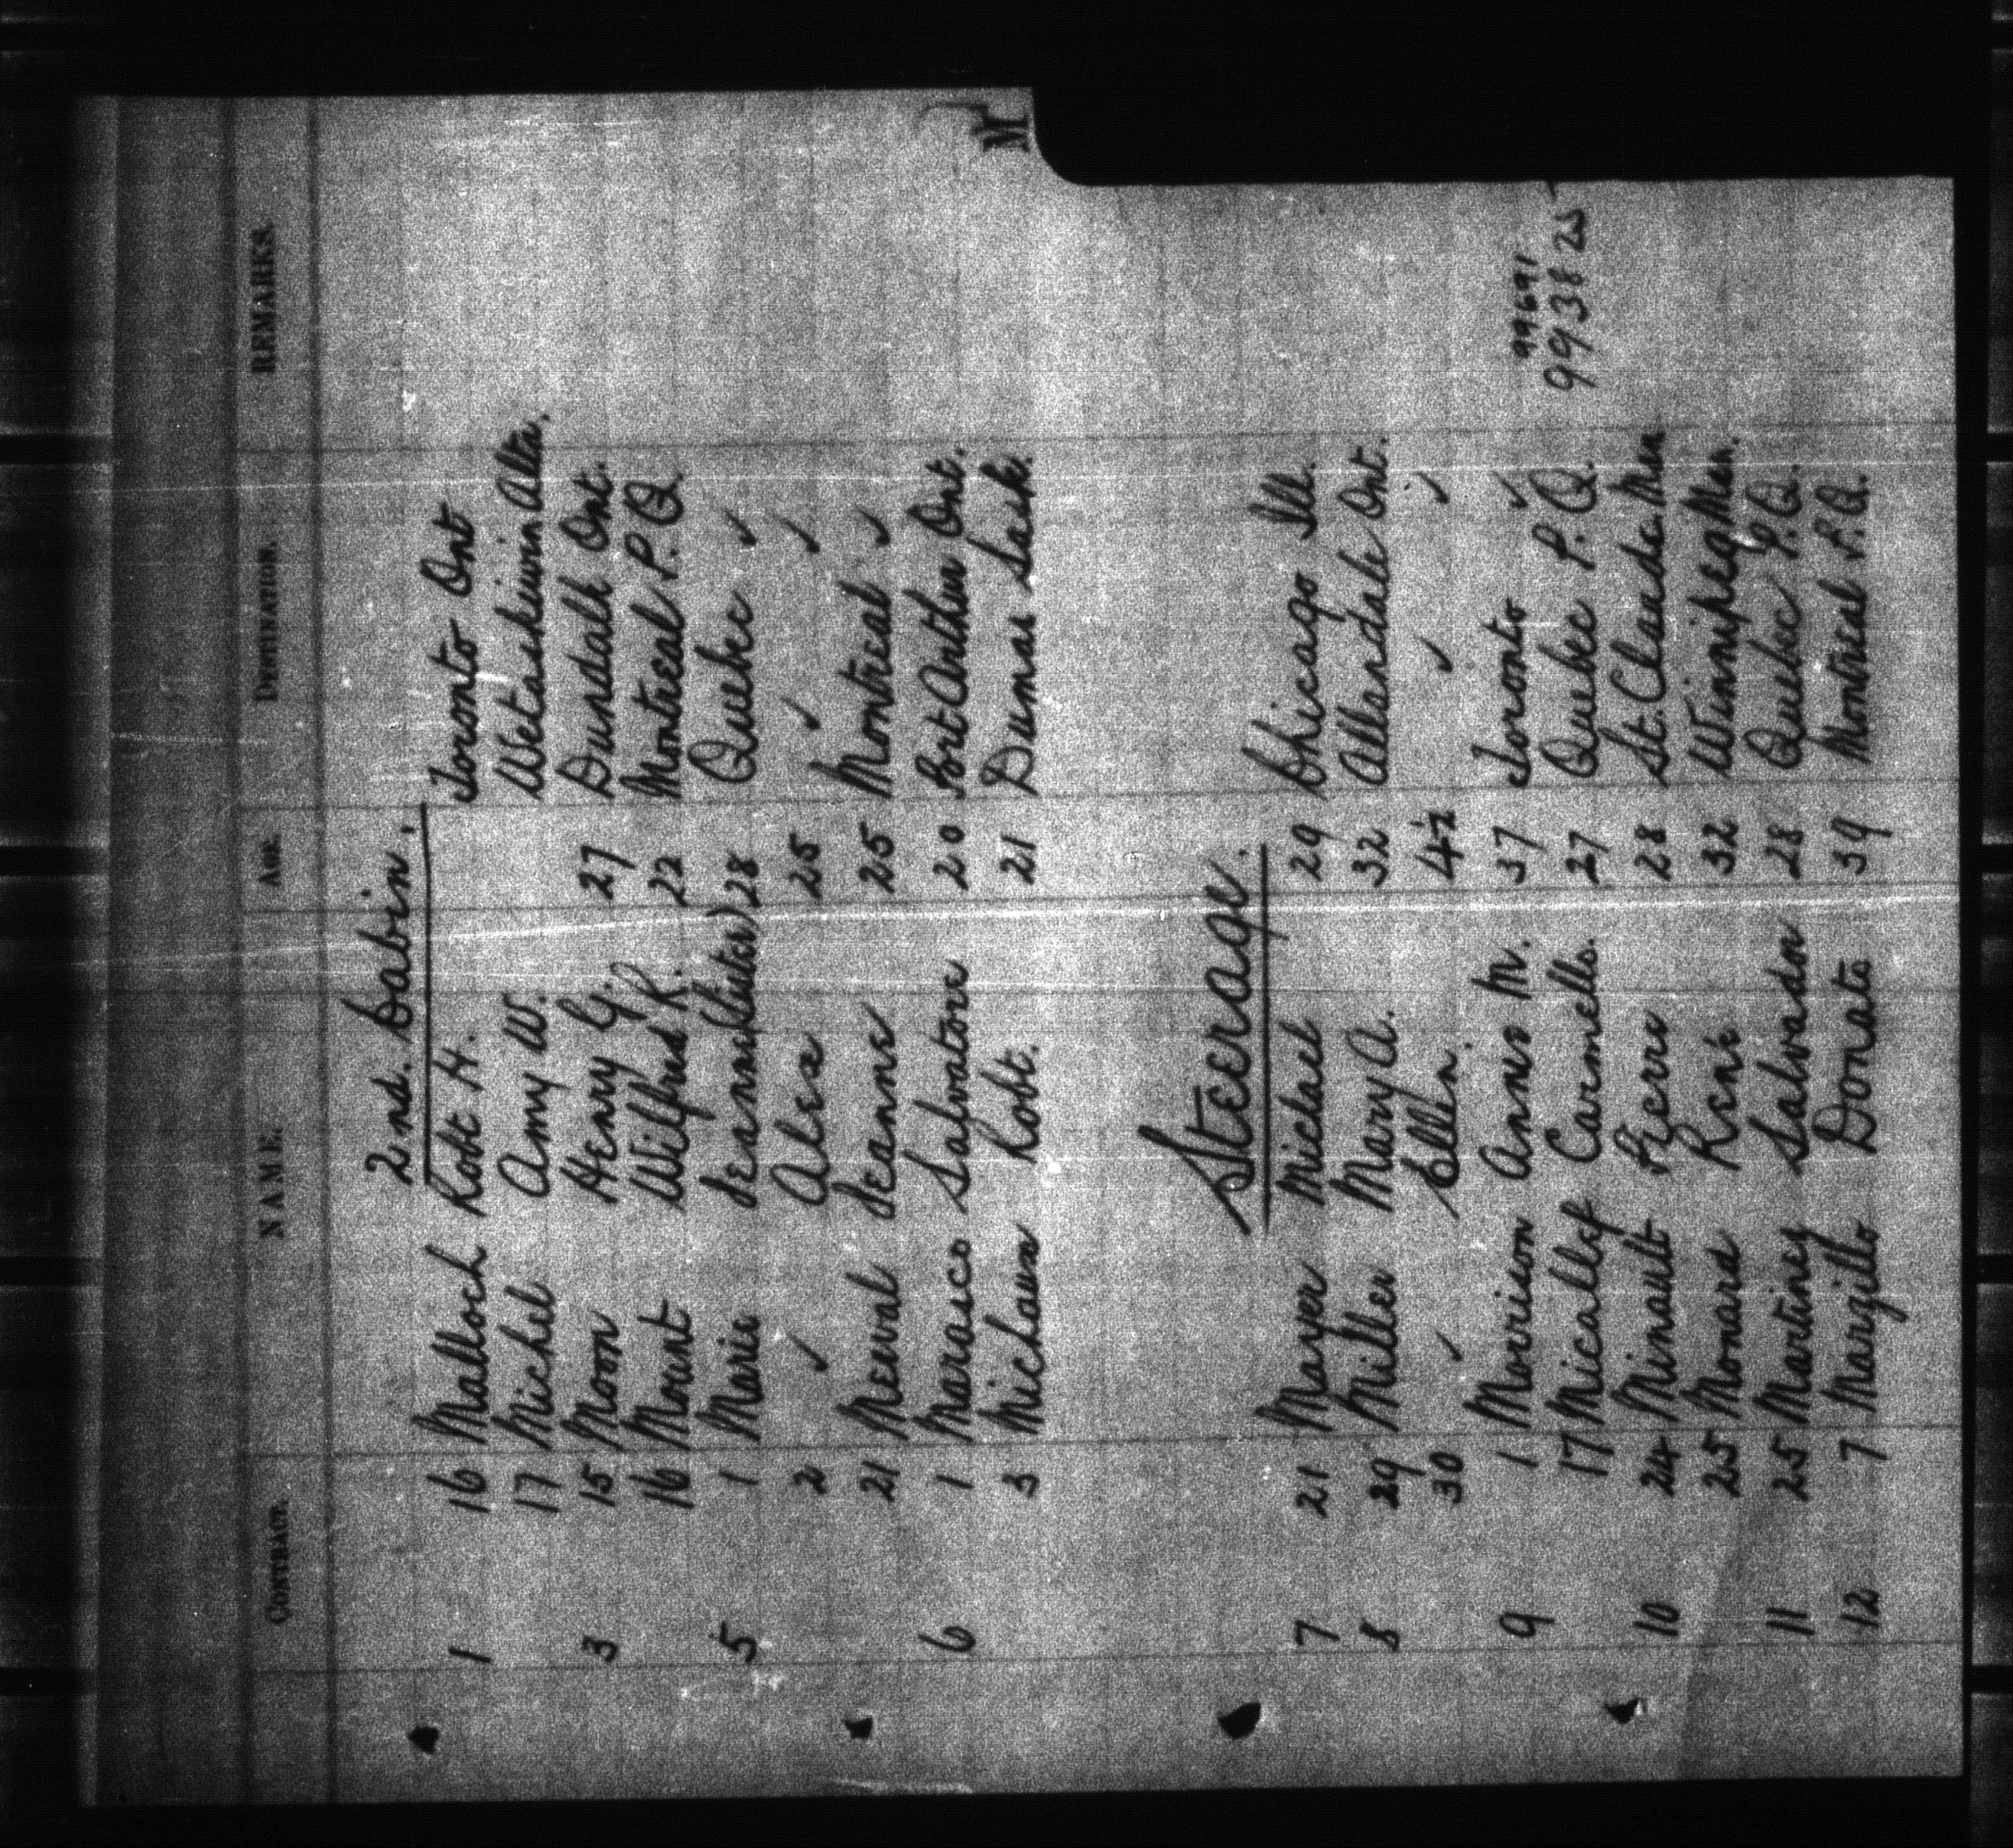 M
CONTRACT. NAME. AGE. DESTINATION. REMARKS.
2nd. Cabin.
1 16 Malloch Robt H. Toronto Ont
17 Michel Amy W. Wetaskiwin Alta.
3 15 Moon Henry G. 27 Dundalk Ont.
16 Mount Wilfred R. 22 Montreal P.Q.
5 1 Marie Jeanne (Sister) 28 Quebec ✓
2 ✓ Alex 25 ✓ ✓
21 Merval Jeanne 25 Montreal ✓
6 1 Marasco Salvatore 20 Port Arthur Ont.
3 Michaux Robt. 21 Dumas Sask.
Steerage.
7 21 Mayer Michael 29 Chicago Ill.
8 29 Miller Mary A. 32 Allandale Ont.
30 ✓ Ellen. 4½ ✓ ✓
9 1 Morrison Annie M. 37 Toronto ✓ 99691
17 Micallef Carmello. 27 Quebec P.Q. 99938 25
10 24 Minault Pierre 28 St. Claude Man
25 Monard René 32 Winnipeg Man.
11 25 Martinez Salvador 28 Quebec P.Q.
12 7 Marzillo Donato 39 Montreal P.Q.